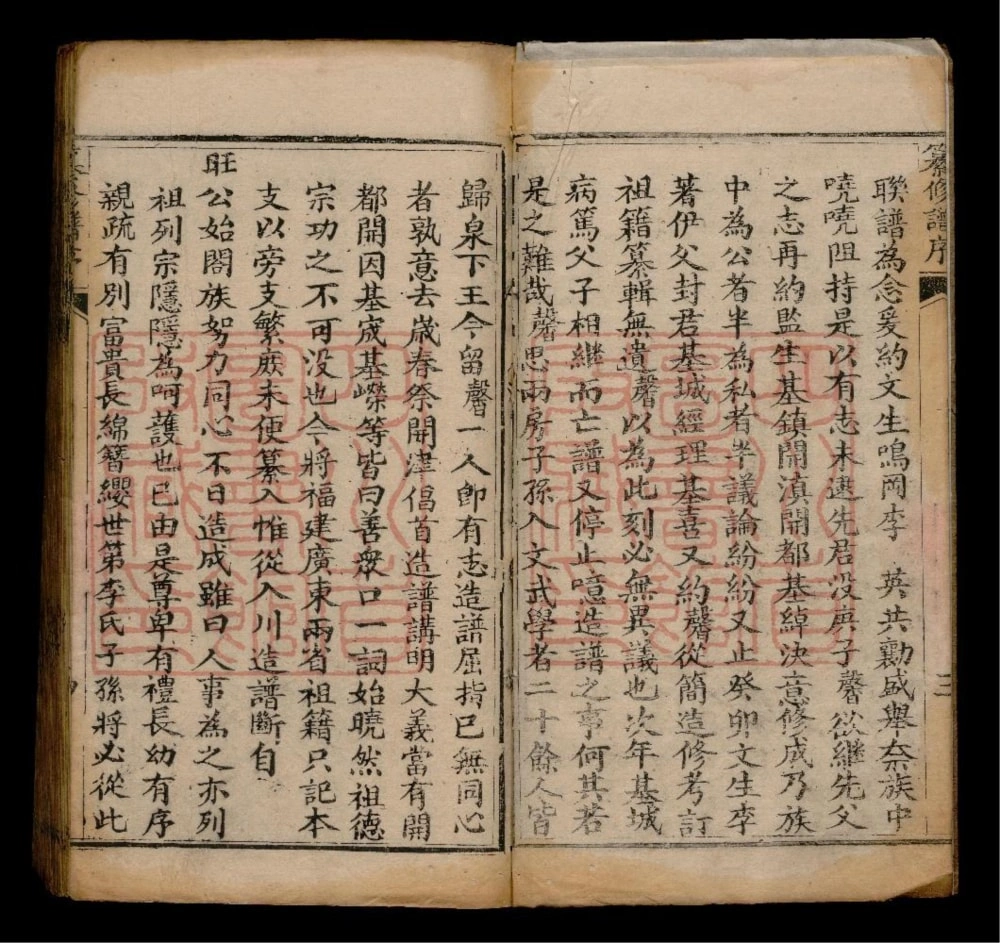 纂修譜序
三
聯譜為念爰約文生鳴岡李 英共勷盛舉奈族中
嘵嘵阻持是以有志未逮先君没庚子馨欲繼先父
之志再約監生基鎮開滇開都基綽决意修成乃族
中為公者半為私者半議論紛紛又止癸卯文生李
著伊父封君基城經理基喜又約馨從簡造修考訂
祖籍纂輯無遺馨以為此刻必無異議也次年基城
病篤父子相繼而亡譜又停止噫造譜之事何其若
是之難哉馨思兩房子孫入文武學者二十餘人皆
歸泉下王今留馨一人即有志造譜屈指已無同心
者孰意去嵗春祭開津倡首造譜講明大義當有開
都開因基宬基嶸等皆曰善衆口一詞始曉然祖德
宗功之不可没也今將福建廣東兩省祖籍只記本
支以旁支繁厰未便纂入惟從入川造譜斷自
旺公始閤族努力同心不日造成雖曰人事為之亦列
祖列宗隱隱為呵護也已由是尊卑有禮長幼有序
親疏有別富貴長綿簪纓世第李氏子孫將必從此